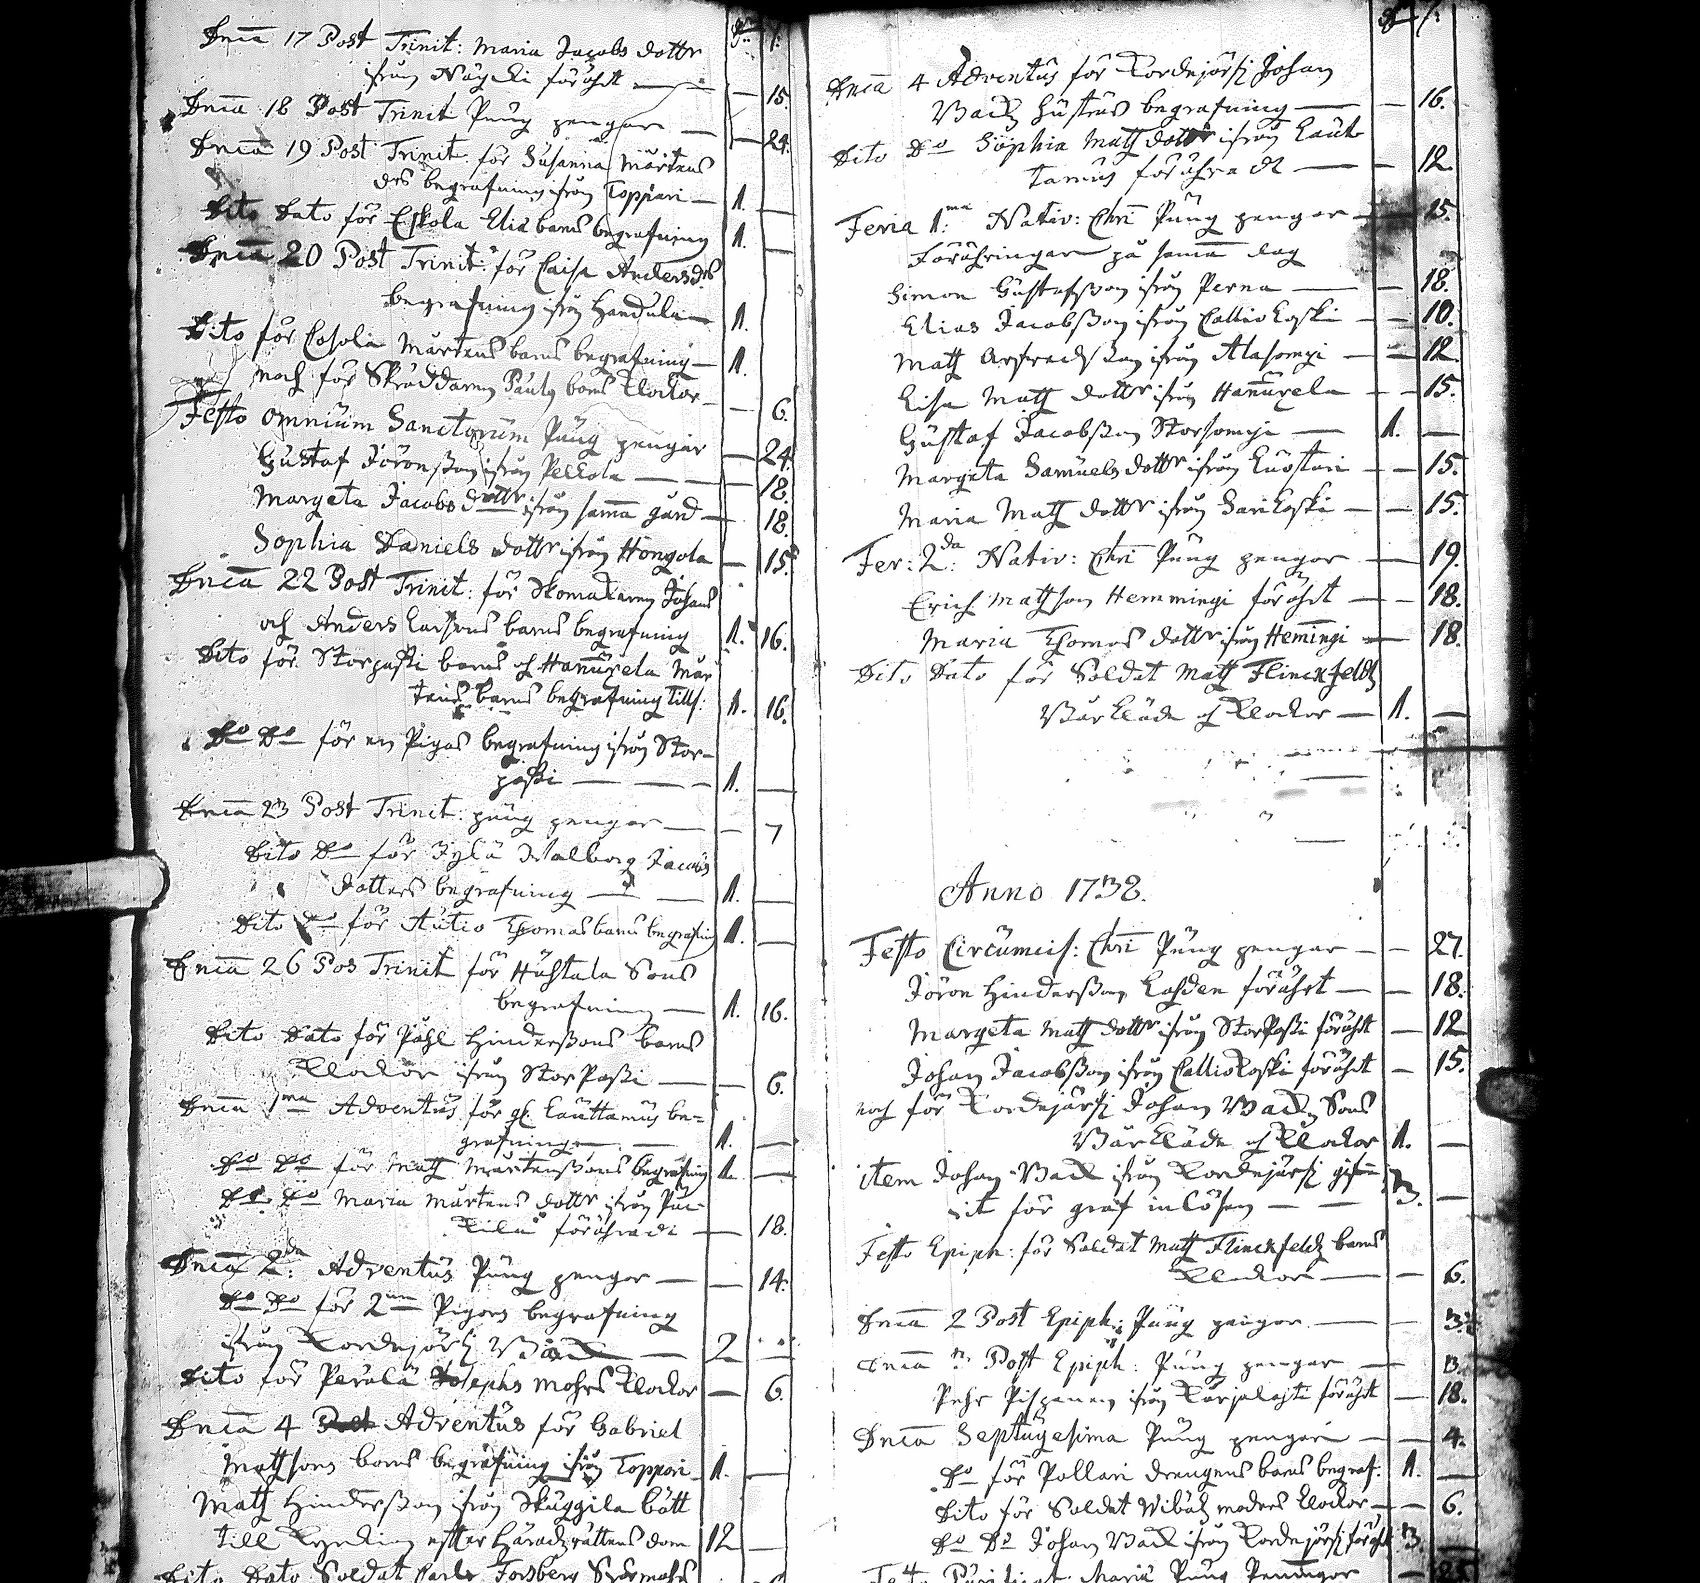 Dnica 17 Post Trinit: Maria Jacobs dottr
ifrån Näyki föröhrt — 15.
Dnica 18 Post Trinit Pung pengar — 24.
Dnica 19 Post Trinit. för Susanna Mårtens
drs begrafning ifrån Toppari — 1. —
Dito Dato för Eskola Elia barns begrafning 1. —
Dnica 20 Post Trinit: för Caisa Anders drs
begrafning ifrån Handula — 1.
Dito för Mårtens barns begrafning — 1.
noch för Skräddaren Påuls barns Klockor — 6.
Festo Omnium Sanctorum Pung pengar — 24.
Gustaf Jöronßon ifrån Pelkola — 18.
Margeta Jacobs dottr ifrån samma gård — 18.
Sophia Daniels dottr ifrån Hongola — 15.
Dnica 22 Post Trinit: för Skomakaren Johans
och Anders Larsons barns begrafning 1. 16.
Dito för Storpaßi barns och Hannuxela Mår
tens barns begrafning tills: 1. 16.
Do Do för en Pigas begrafning ifrån Stor-
paßi — 1. —
Dnica 23 Post Trinit: pung pengar — 7
Dito Do för Jylä Walborg Jacobs
dotters begrafning — 1. —
Dito Do för Autio Thomas barns begrafning 1. —
Dnica 26 Pos Trinit för Huhtala Sons
begrafning — 1. 16.
Dito Dato för Påhl Hinderßons barns
Klockor ifrån StorPaßi — 6.
Dnica 1ma Adventus för gl. Lauttamus be-
grafning — 1. —
Do Do för Math Mårtenßons begrafning 1. —
Do Do Maria Mårtens dottr ifrån
föröhradt — 18.
Dnica 2da: Adventus Pung pengar — 14.
Do Do för 2ne Pigors begrafning
ifrån Kordesjärfj — 2
Dito för Perälä Josephs mohrs Klockor — 6.
Dnica 4 Adventus för Gabriel
Mathsons barns begrafning ifrån Toppari 1. —
Math Hinderßon ifrån Skuggila bött
till Kyrckian efter Häradzrättens dom 12 —
Dito Dato Soldat Carls Forsberg
Dnica 4 Adventus för Kordesjärfj Johan
Back Hustrus begrafning — 16.
Dito Do Sophia Math dottr ifrån Laut
tamus föröhradt — 12.
Feria 1ma: Nativ: Chri Pung pengar — 15.
Föröhringar på samma dag
Simon Gustafßon ifrån Perna — 18.
Elias Jacobßon ifrån Calliokoski — 10.
Math ifrån Alasomgi — 12.
Lisa Math dottr ifrån Hannuxela — 15.
Gustaf Jacobßon Storsomgi — 1. —
Margeta Samuels dottr ifrån Luostari — 15.
Maria Math dottr ifrån Sarikoski — 15.
Fer: 2da: Nativ: Chri Pung pengar — 19.
Erich Mathson Hemmingi föröhrt — 18.
Maria Thomas dottr ifrån Hemingi — 18.
Dito Dato för Soldat Math Flinckfeldtz
Bårkläde och Klockor — 1. —
Anno 1738.
Festo Circumcis: Chri Pung pengar — 27.
Jöron Hinderßon föröhrt — 18.
Margeta Math dottr ifrån StorPaßi föröhrt — 12
Johan Jacobßon ifrån Calliokoski föröhrt — 15.
noch för Kordesjärfj Johan Back Sons
Bårkläde och Klockor 1. —
item Johan Back ifrån Kordesjärfj gifvi
it för graf inlösen — 3. —
Festo Epiph: för Soldat Math Flinckfeldtz barns
Klockor — 6.
Dnica 2 Post Epiph: Pung pengar — 3.
Dnica 3 Post Epiph: Pung pengar — 13.
Pehr Pispanen ifrån Karjalahti föröhrt — 18.
Dnica Septuagesima Pung pengar — 4.
Do för Pollari drengens barns begraf. 1. —
Dito för Soldat modres Klockor — 6.
Do Do Johan Back ifrån Kordesjärfj föröhrt 3. —
Festo Purificat: Mariä Pung Penningar — 25